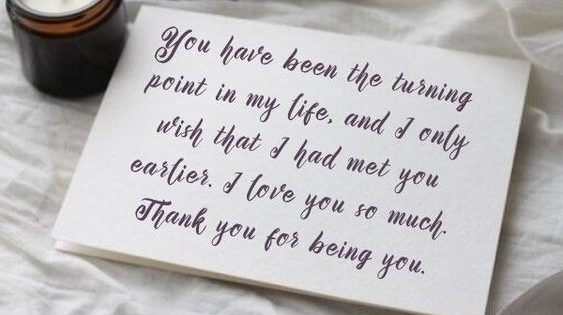 You have been the turning
point in my life, and I only
wish that I had met you
earlier. I love you so much.
Thank you for being you.